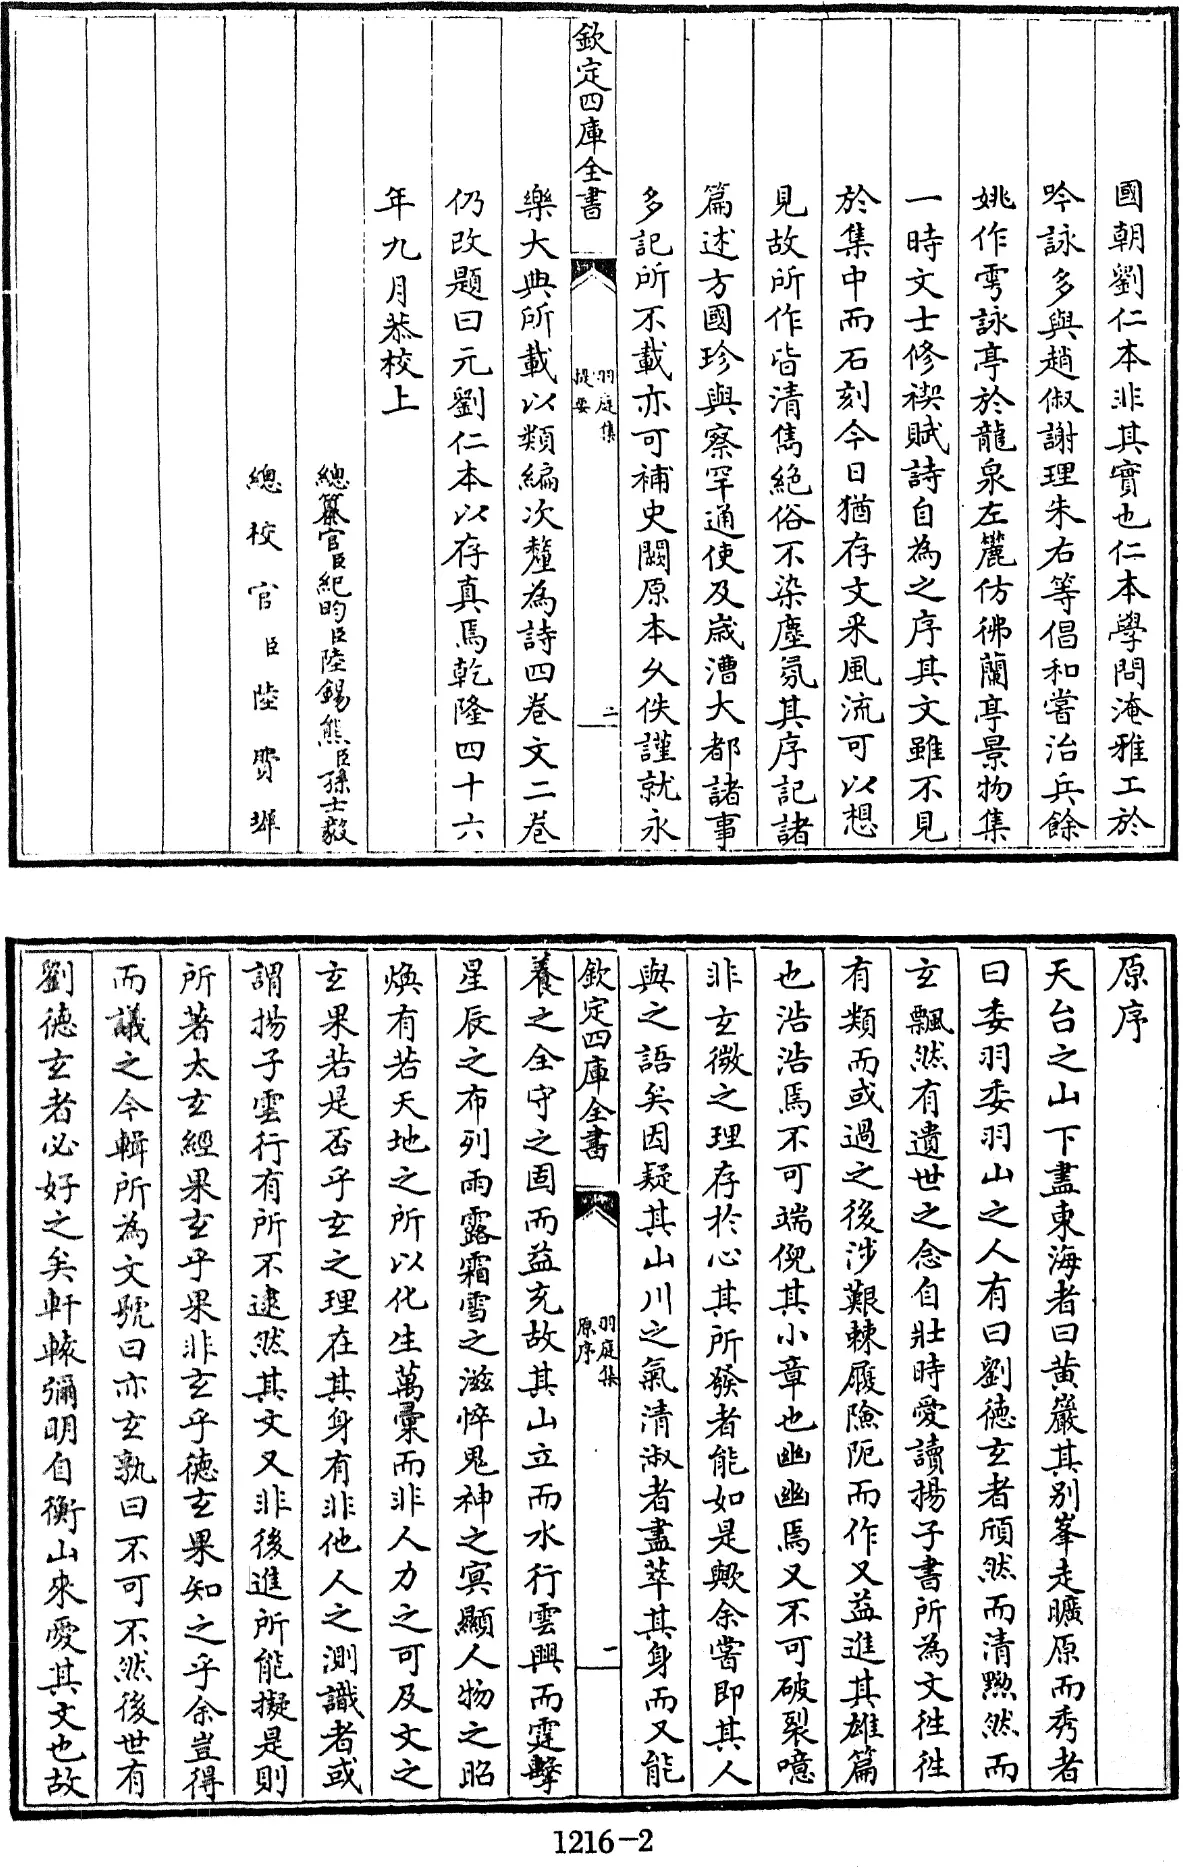 國朝劉仁本非其實也仁本學問淹雅工於
吟詠多與趙俶謝理朱右等倡和嘗治兵餘
姚作雩詠亭於龍泉左麓仿彿蘭亭景物集
一時文士修禊賦詩自為之序其文雖不見
於集中而石刻今日猶存文采風流可以想
見故所作皆清雋絶俗不染塵氛其序記諸
篇述方國珍與察罕通使及歲漕大都諸事
多記所不載亦可補史闕原本久佚謹就永
欽定四庫全書
羽庭集
提要
二
樂大典所載以類編次釐為詩四卷文二卷
仍改題曰元劉仁本以存真焉乾隆四十六
年九月恭校上
總纂官臣紀昀臣陸錫熊臣孫士毅
總校官臣陸費墀
原序
天台之山下盡東海者曰黄巖其别峯走曠原而秀者
曰委羽委羽山之人有曰劉德玄者頎然而清黝然而
玄飄然有遺世之念自壯時愛讀揚子書所為文往往
有類而或過之後涉艱棘履險阨而作又益進其雄篇
也浩浩焉不可端倪其小章也幽幽焉又不可破裂噫
非玄微之理存於心其所發者能如是歟余嘗即其人
與之語矣因疑其山川之氣清淑者盡萃其身而又能
欽定四庫全書
羽庭集
原序
一
養之全守之固而益充故其山立而水行雲興而霆擊
星辰之布列雨露霜雪之滋悴鬼神之冥顯人物之昭
煥有若天地之所以化生萬彚而非人力之可及文之
玄果若是否乎玄之理在其身有非他人之測識者或
謂揚子雲行有所不逮然其文又非後進所能擬是則
所著太玄經果玄乎果非玄乎德玄果知之乎余豈得
而議之今輯所為文號曰亦玄孰曰不可不然後世有
劉德玄者必好之矣軒轅彌明自衡山來愛其文也故
1216-2